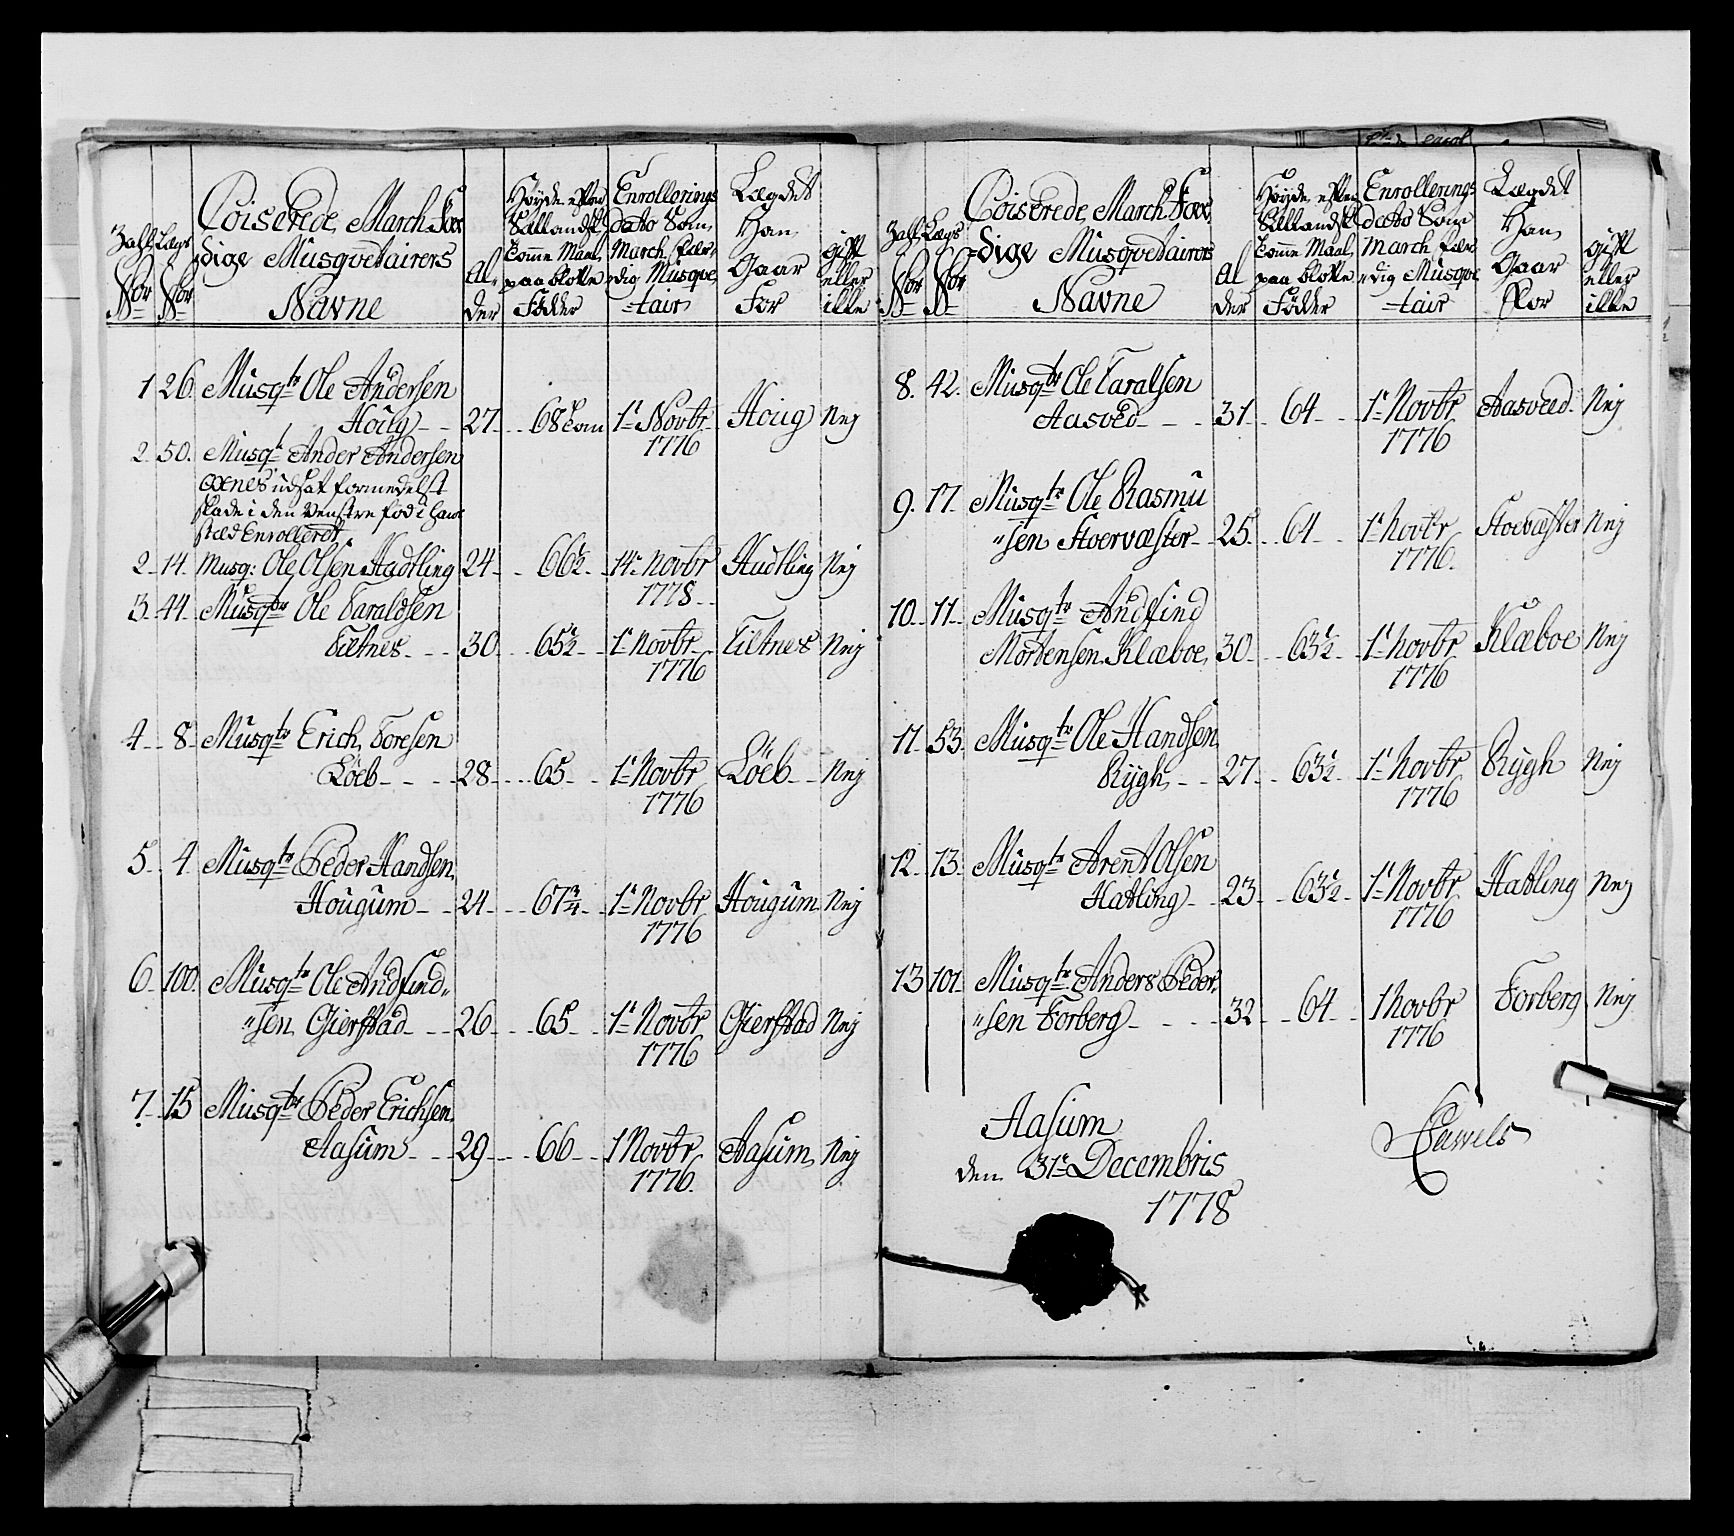 Zahl Lægs
Nor Nor
Coiserede March Fær
dige Musqvetairers
Navne
Al
der
Høyde efter
Sællandsk
Tomme Maal
paa blotte
Födder
Enrollerings
dato Som
March fær-
dig Musqve
-tair
Lægdet
Han
Gaar
For
gift
eller
ikke
1 26 Musqtr Ole Andersen
Houg 27 68 Tom 1te Novbr Houg Nej
1776
2 50 Musqt Ander Andersen
Oxnes udsat formedelst
skade i den Venstre fod i hans
stæd Enrollerdt
2 14 Musq: Ole Olsen Hadtling 24 66½ 14te Novbr Hadtling Nej
1778
3 44 Musqtr Ole Taraldsen
Tiltnes 30 65½ 1te Novbr Tiltnes Nej
1776
4 8 Musqtr Erich Toresen
Löeb 28 65 1te Novbr Löeb Nej
1776
5 4 Musqtr Peder Handsen
Hougum 24 67¾ 1te Novbr Hougum Nej
1776
6 100 Musqtr Ole Andfind„
„sen Gierstad 26 65 1te Novbr Gierstad Nej
1776
7 15 Musqtr Peder Erichsen
Aasum 29 66 1 Novbr Aasum Nej
1776
Zahl Lægs
Nor Nor
Coiserede March Fær
-dige Musqvetairers
Navne
Al
der
Høyde efter
Sællandsk
Tomme Maal
paa blotte
Födder
Enrollerings
dato Som
March fær
-dig Musqve
-tair
Lægdet
Han
Gaar
For
gift
eller
ikke
8. 42. Musqtr Ole Taralsen
Aasved 31 64 1te Novbr Aasved Nej
1776
9. 17 Musqtr Ole Rasmu
„sen Stoervæster 25 64 1te Novbr Stoevæster Nej
1776
10 11 Musqtr Andfind
Mortensen Klæboe 30 63½ 1te Novbr Klæboe Nej
1776
11 53 Musqtr Ole Handsen
Rygh 27 63½ 1te Novbr Rygh Nej
1776
12 13 Musqtr Arent Olsen
Hatling 23 63½ 1te Novbr Hatling Nej
1776
13 101 Musqtr Anders Peder
„sen Forberg 32 64 1 Novbr Forberg Nej
1776
Aasum
den 31te Decembris
1778